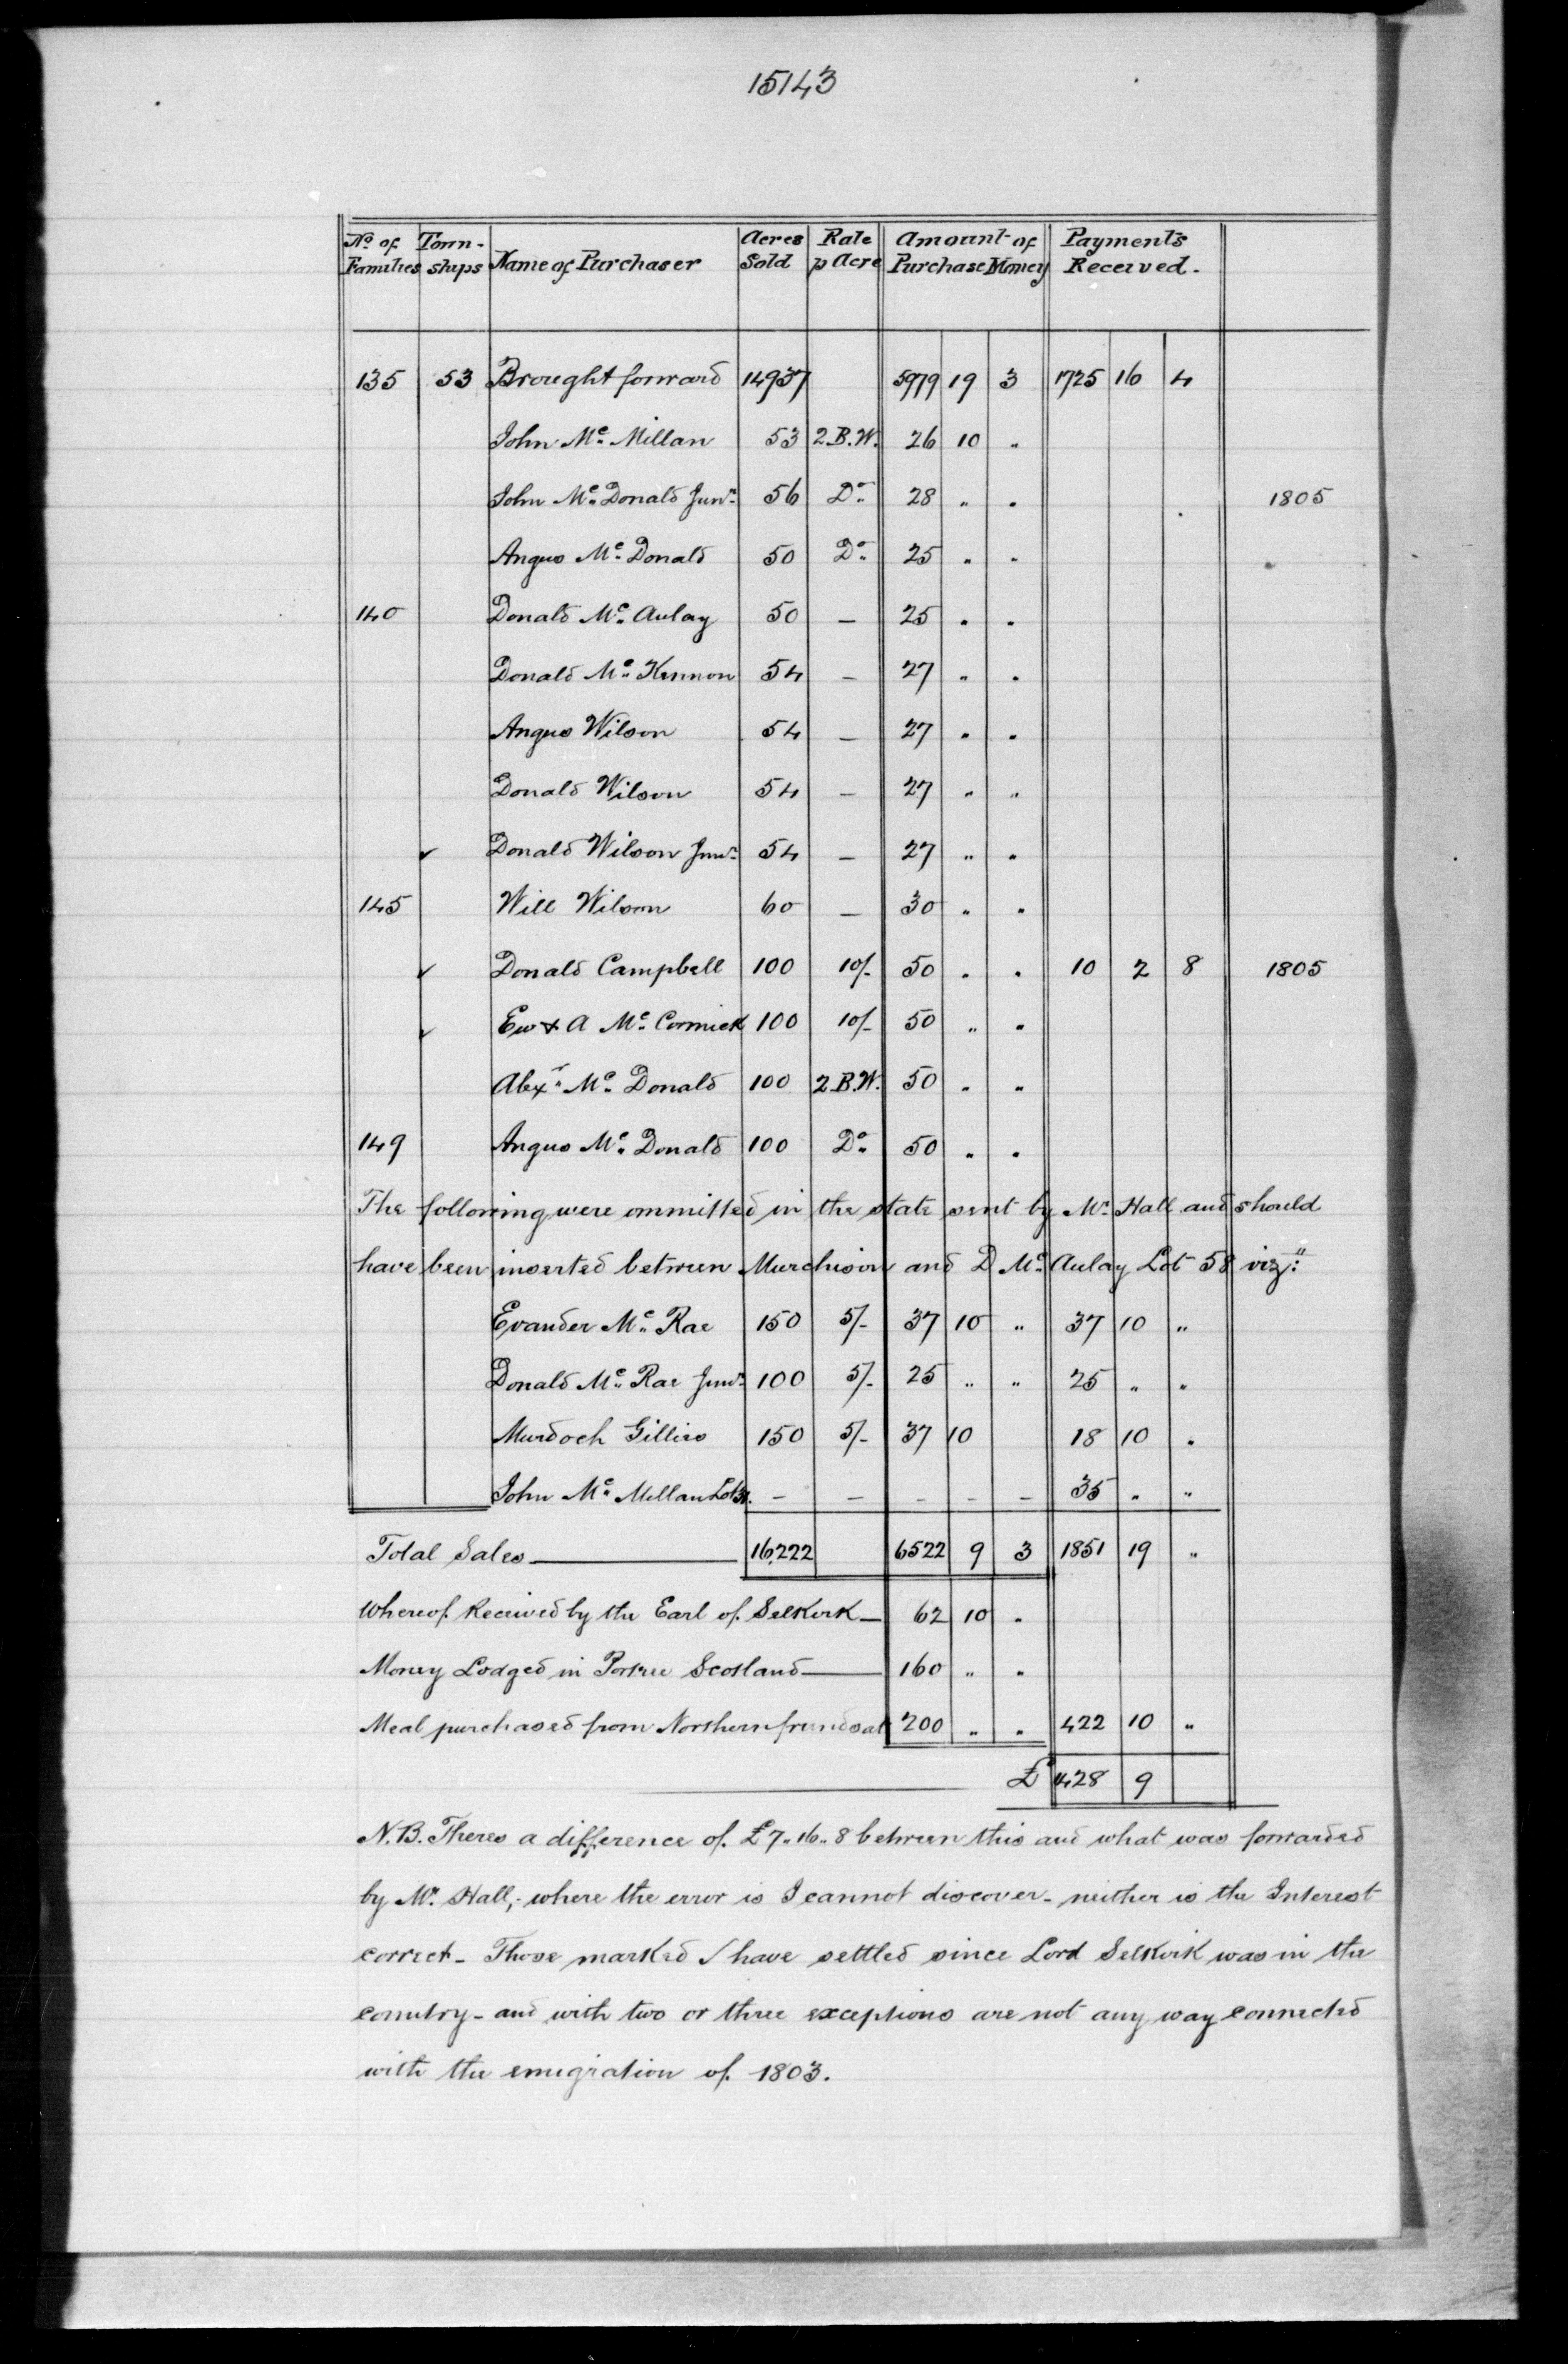 15143
No. of Families | Town-ships | Name of Purchaser | Acres Sold | Rate p Acre | Amount of Purchase Money | Payments Received.
135 53 Brought forward 14937 5979 19 3 1725 16 4
John Mc. Millan 53 2.B.W. 26 10 "
John Mc. Donald Junr. 56 Do. 28 " " 1805
Angus Mc. Donald 50 Do. 25 " "
140 Donald Mc. Aulay 50 – 25 " "
Donald Mc. Kinnon 54 – 27 " "
Angus Wilson 54 – 27 " "
Donald Wilson 54 – 27 " "
✓ Donald Wilson Junr. 54 – 27 " "
145 Will Wilson 60 – 30 " "
✓ Donald Campbell 100 10/- 50 " " 10 2 8 1805
✓ Ew & A Mc. Cormick 100 10/- 50 " "
Alexr. Mc. Donald 100 2.B.W. 50 " "
149 Angus Mc. Donald 100 Do. 50 " "
The following were ommitted in the state sent by Mr. Hall and should
have been inserted between Murchison and D Mc. Aulay Lot 58 viz:"
Evander Mc. Rae 150 5/- 37 10 " 37 10 "
Donald Mc. Rae Junr. 100 5/- 25 " " 25 " "
Murdoch Gillies 150 5/- 37 10 18 10 "
John Mc. Millan Lot – – – – – 35 " "
Total Sales 16,222 6522 9 3 1851 19 "
Whereof Received by the Earl of Selkirk — 62 10 "
Money Lodged in Portree Scotland — 160 " "
Meal purchased from Northern friends at 200 " " 422 10 "
£ 1428 9
N.B. Theres a difference of £7"16"8 between this and what was forwarded
by Mr. Hall,- where the error is I cannot discover - neither is the Interest
correct - Those marked ✓ have settled since Lord Selkirk was in the
country - and with two or three exceptions are not any way connected
with the emigration of 1803.